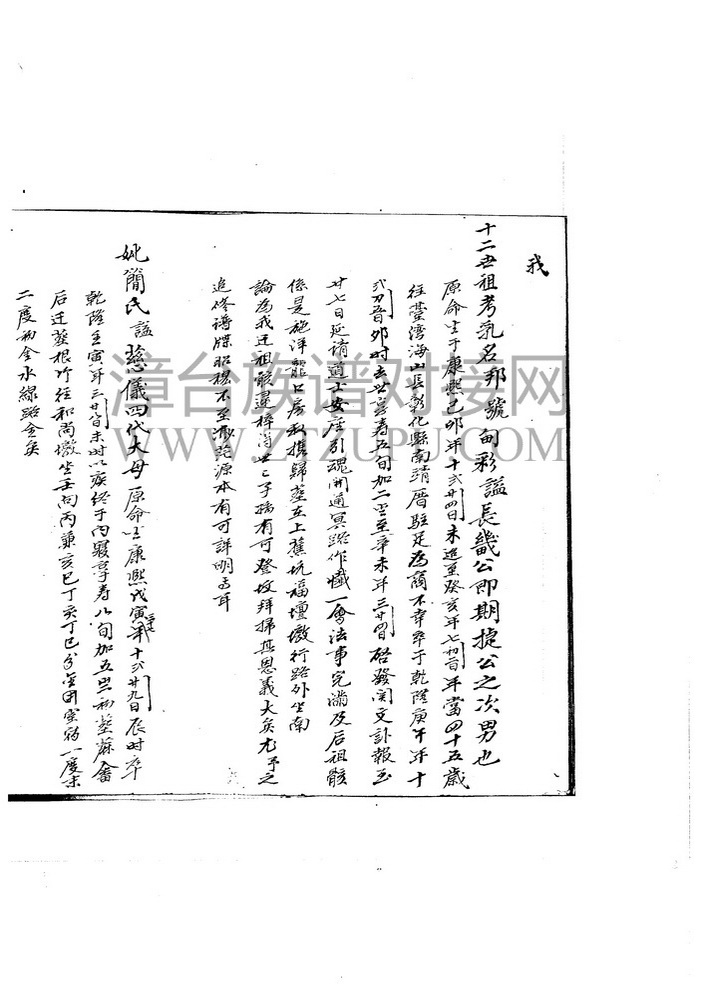 我
十二世祖考乳名邦號甸彩謚長畿公即期捷公之次男也
原命生于康熙己卯年十弍月廿四日未進至癸亥年七月初二日年當四十五歲
往臺灣海山長彰化縣南靖厝駐足為商不幸卒于乾隆庚午年十
弍月初二日卯時去世享壽五旬加二至辛未年三月廿四日啓發関文訃報至
廿七日延請道士安座引魂開通冥路作懺一會法事完滿及后祖骸
係是施洋龍口房叔携歸塟在上蕉坑福壇墩行路外坐南
論為我迁祖骸還梓尚世子孫有可登坟拜掃其恩義大矣尤予之
追修譜牒昭穆不至泯苑源本有可詳明焉耳
妣簡氏謚慈儀四代大母原命生康熙戊寅年十弍月廿九日辰時卒
乾隆壬寅年三月廿八日未時以疾終于內寢享壽八旬加五
后迁葵根竹往和尚墩坐壬向丙兼亥巳丁亥丁巳分金
二度初金水線路全矣
漳台族谱对接网
WWW.ZTZUPU.COM